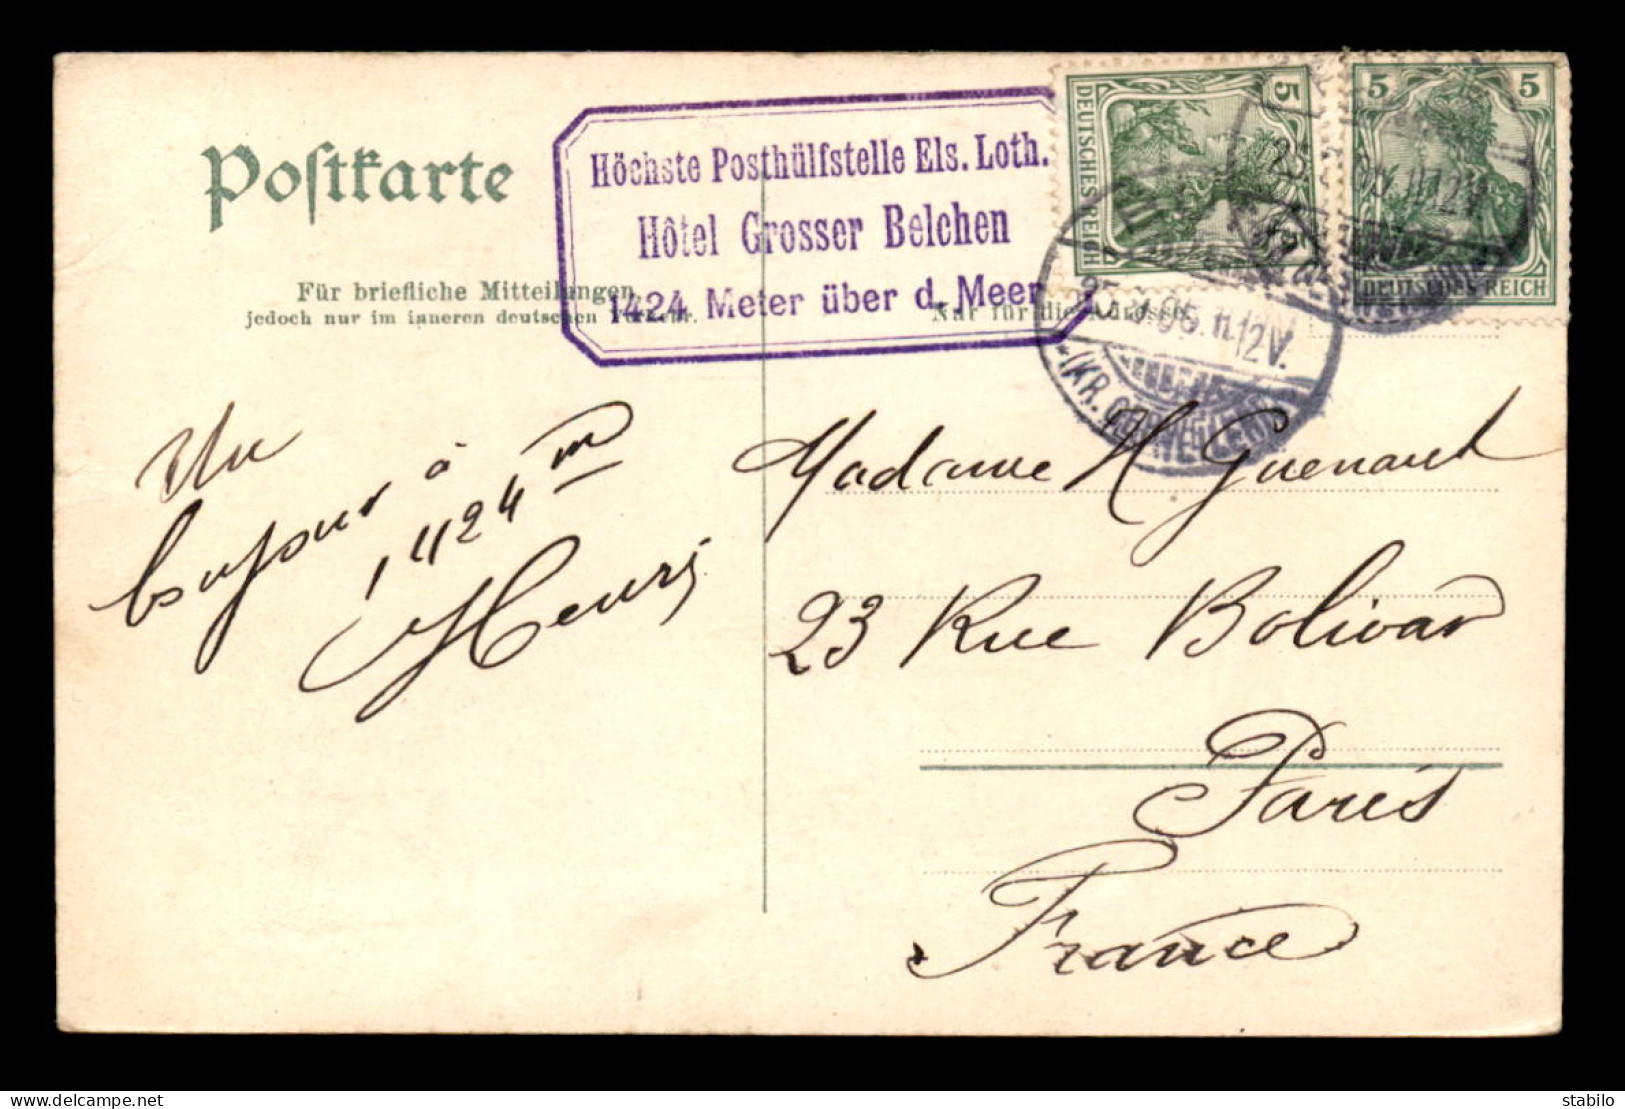 Postkarte
Höchste Posthülfstelle Els. Loth.
Hôtel Grosser Belchen
1424 Meter über d. Meer
Für briefliche Mitteilungen
jedoch nur im inneren deutschen Verkehr.
Nur für die Adresse
DEUTSCHES REICH
5
5 5
DEUTSCHES REICH
06. 11.12V.
(KR. GEBWEILER)
Un
bonjour à
1424 m
Henri
Madame H Guenault
23 Rue Bolivar
Paris
France
delcampe.net
stabilo